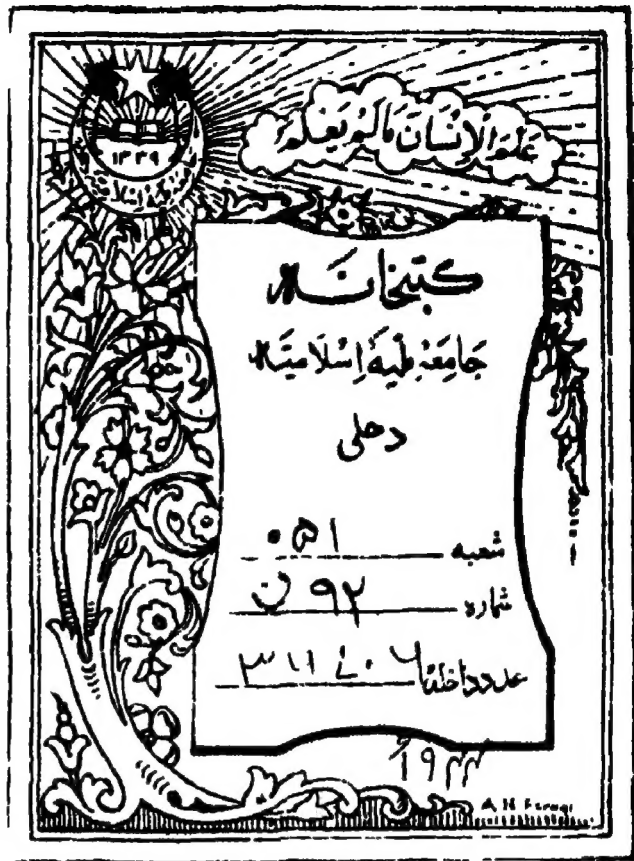 عَلَّمَ الْإِنْسَانَ مَا لَمْ يَعْلَمْ
۱۳۳۹
کتبخانہ
جَامِعَہ مِلّیَہ اِسْلَامِیَہ
دهلی
شعبہ ۰۵۱
شمارہ ۹۲ ن
عدد داخلہ
۱۹۴۴
A H Faruqi